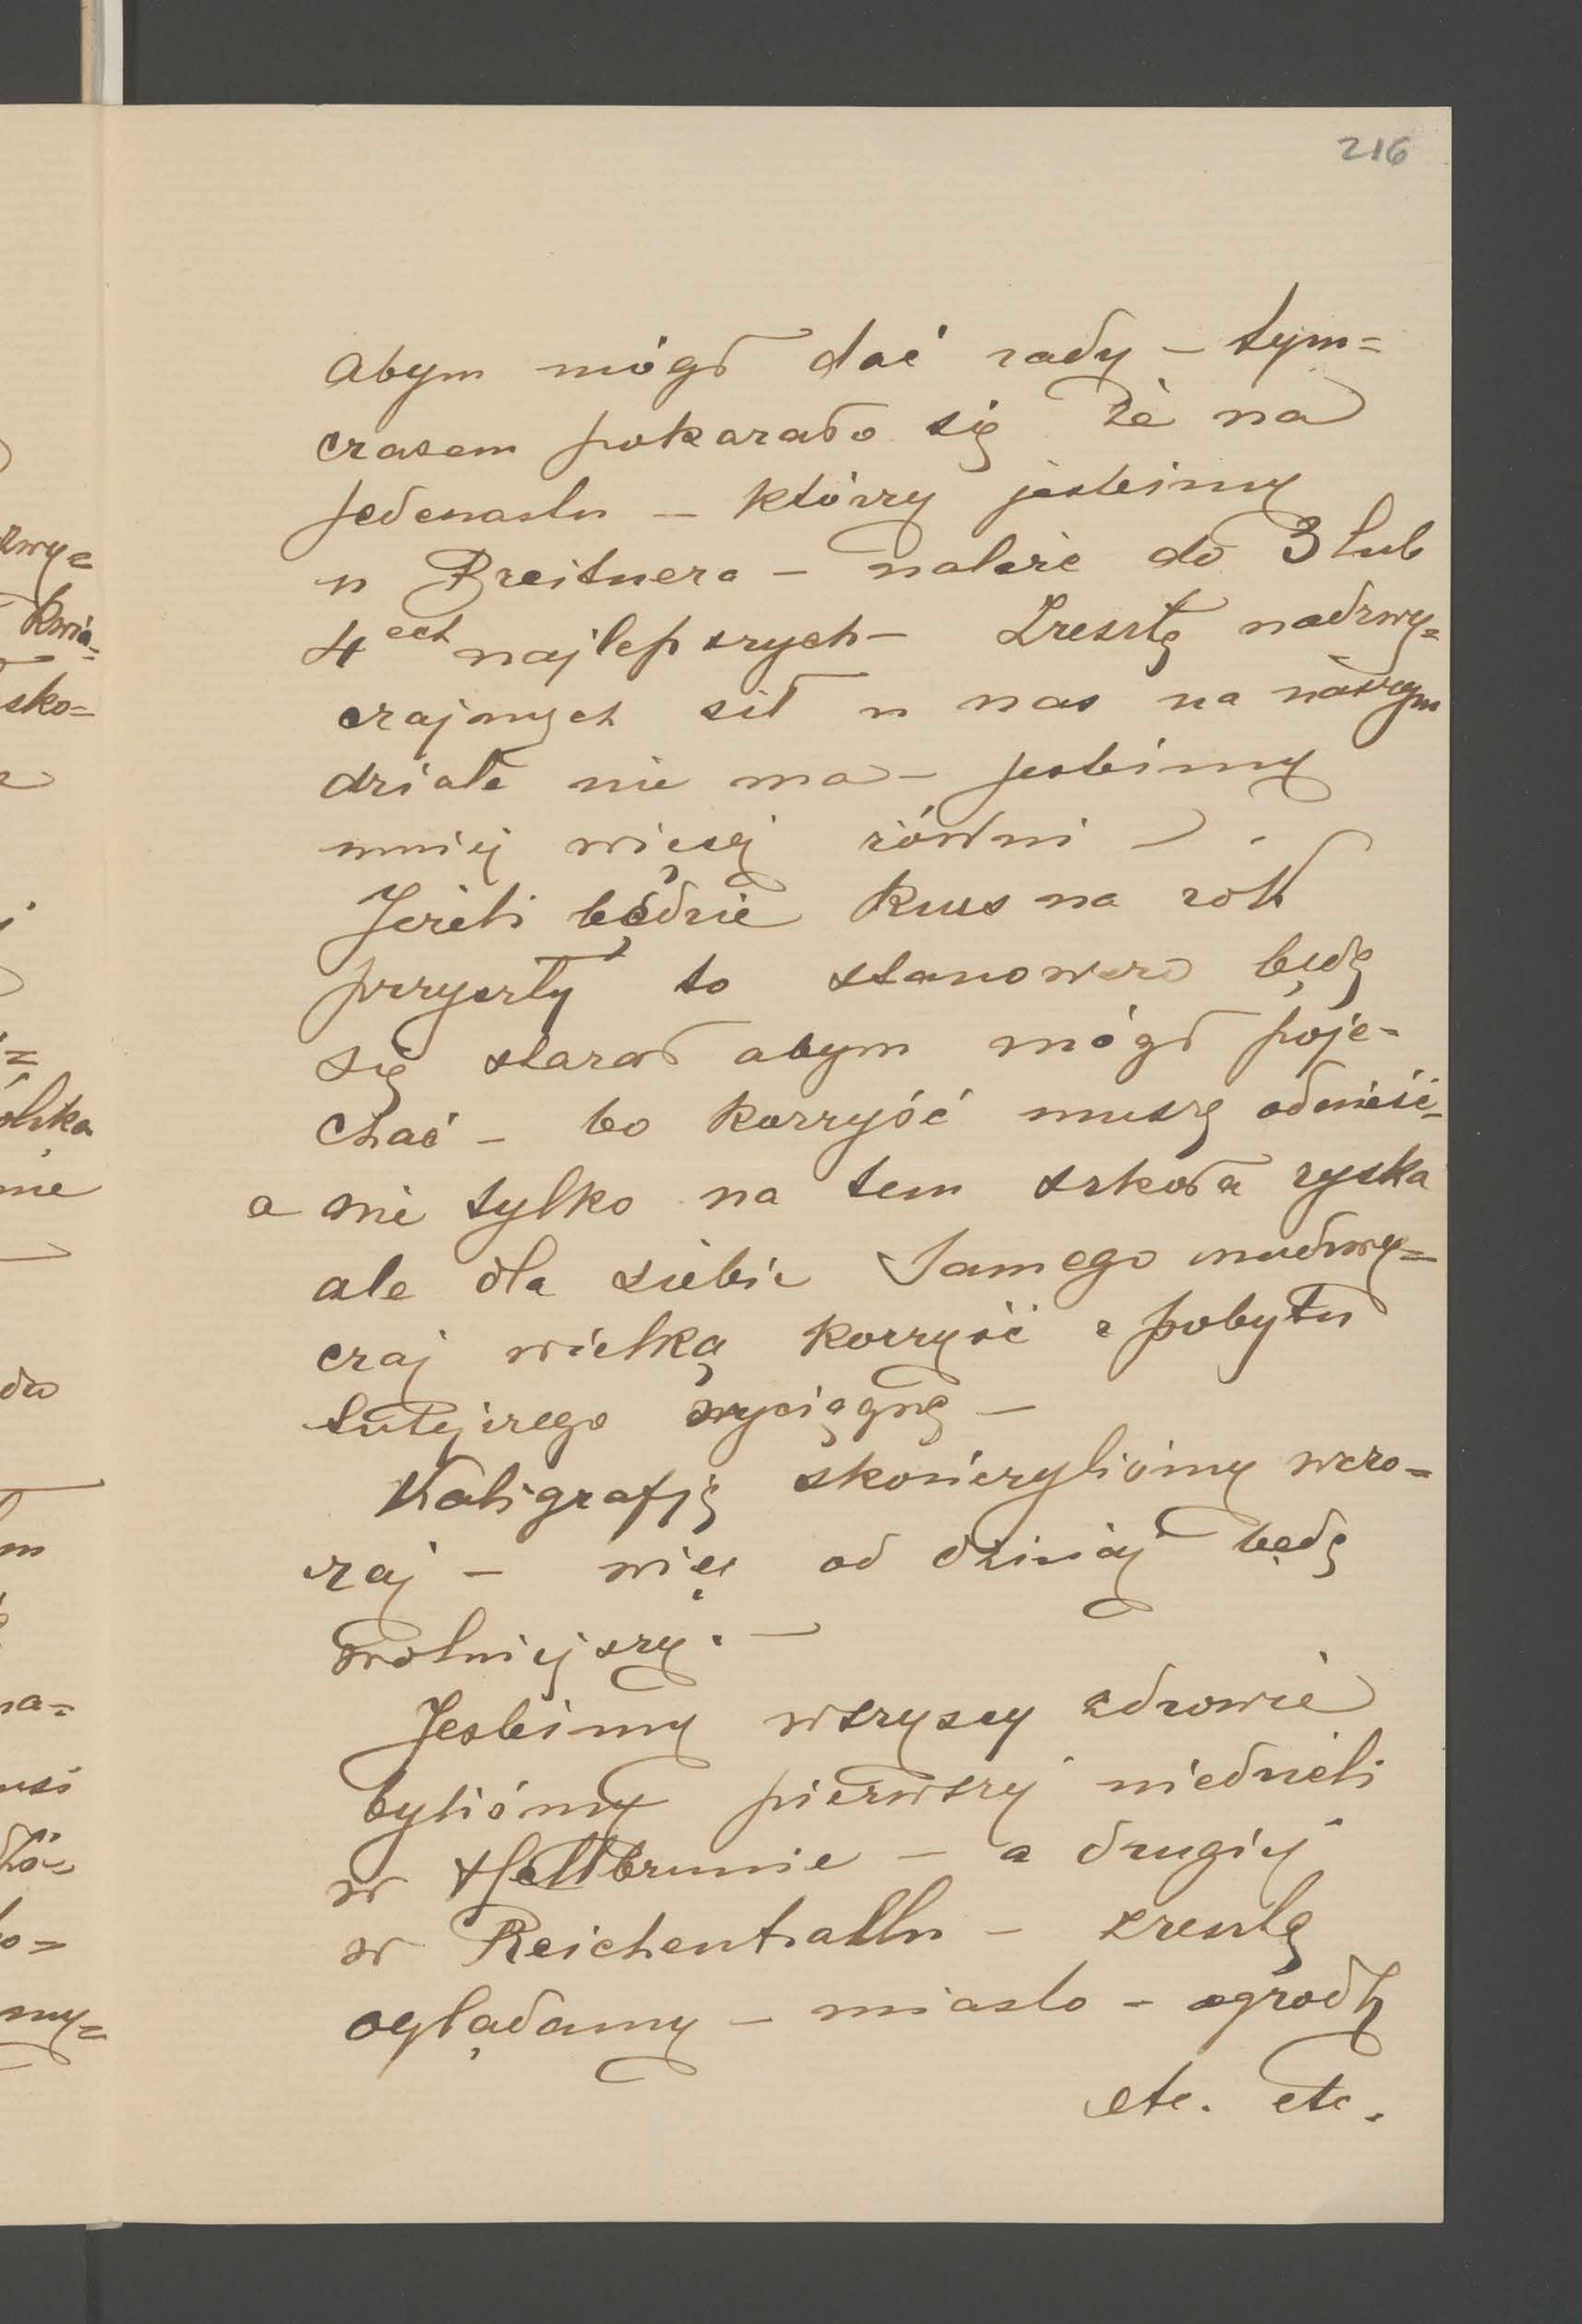 216
abym mógł dać rady – tym=
czasem pokazało się że na
jedenastu – którzy jesteśmy
u Breitnera – należę do 3 lub
4ech najlepszych – Zresztą nadzwy=
czajnych sił u nas na naszym
dziale nie ma – jesteśmy
mniej więcej równi – .
Jeżeli będzie kurs na rok
przyszły to stanowczo będę
się starał abym mógł poje-
chać – bo korzyść muszę odnieść –
a nie tylko na tem szkoła zyska
ale dla siebie samego nadzwy=
czaj wielką korzyść z pobytu
tutejszego wyciągnę –
Kaligrafję skończyliśmy wczo=
raj – więc od dzisiaj będę
wolniejszy. –
Jesteśmy wszyscy zdrowi
byliśmy pierwszej niedzieli
w Hellbrunie – a drugiej
w Reichenhallu – zresztą
oglądamy – miasto – ogrody
etc. etc.